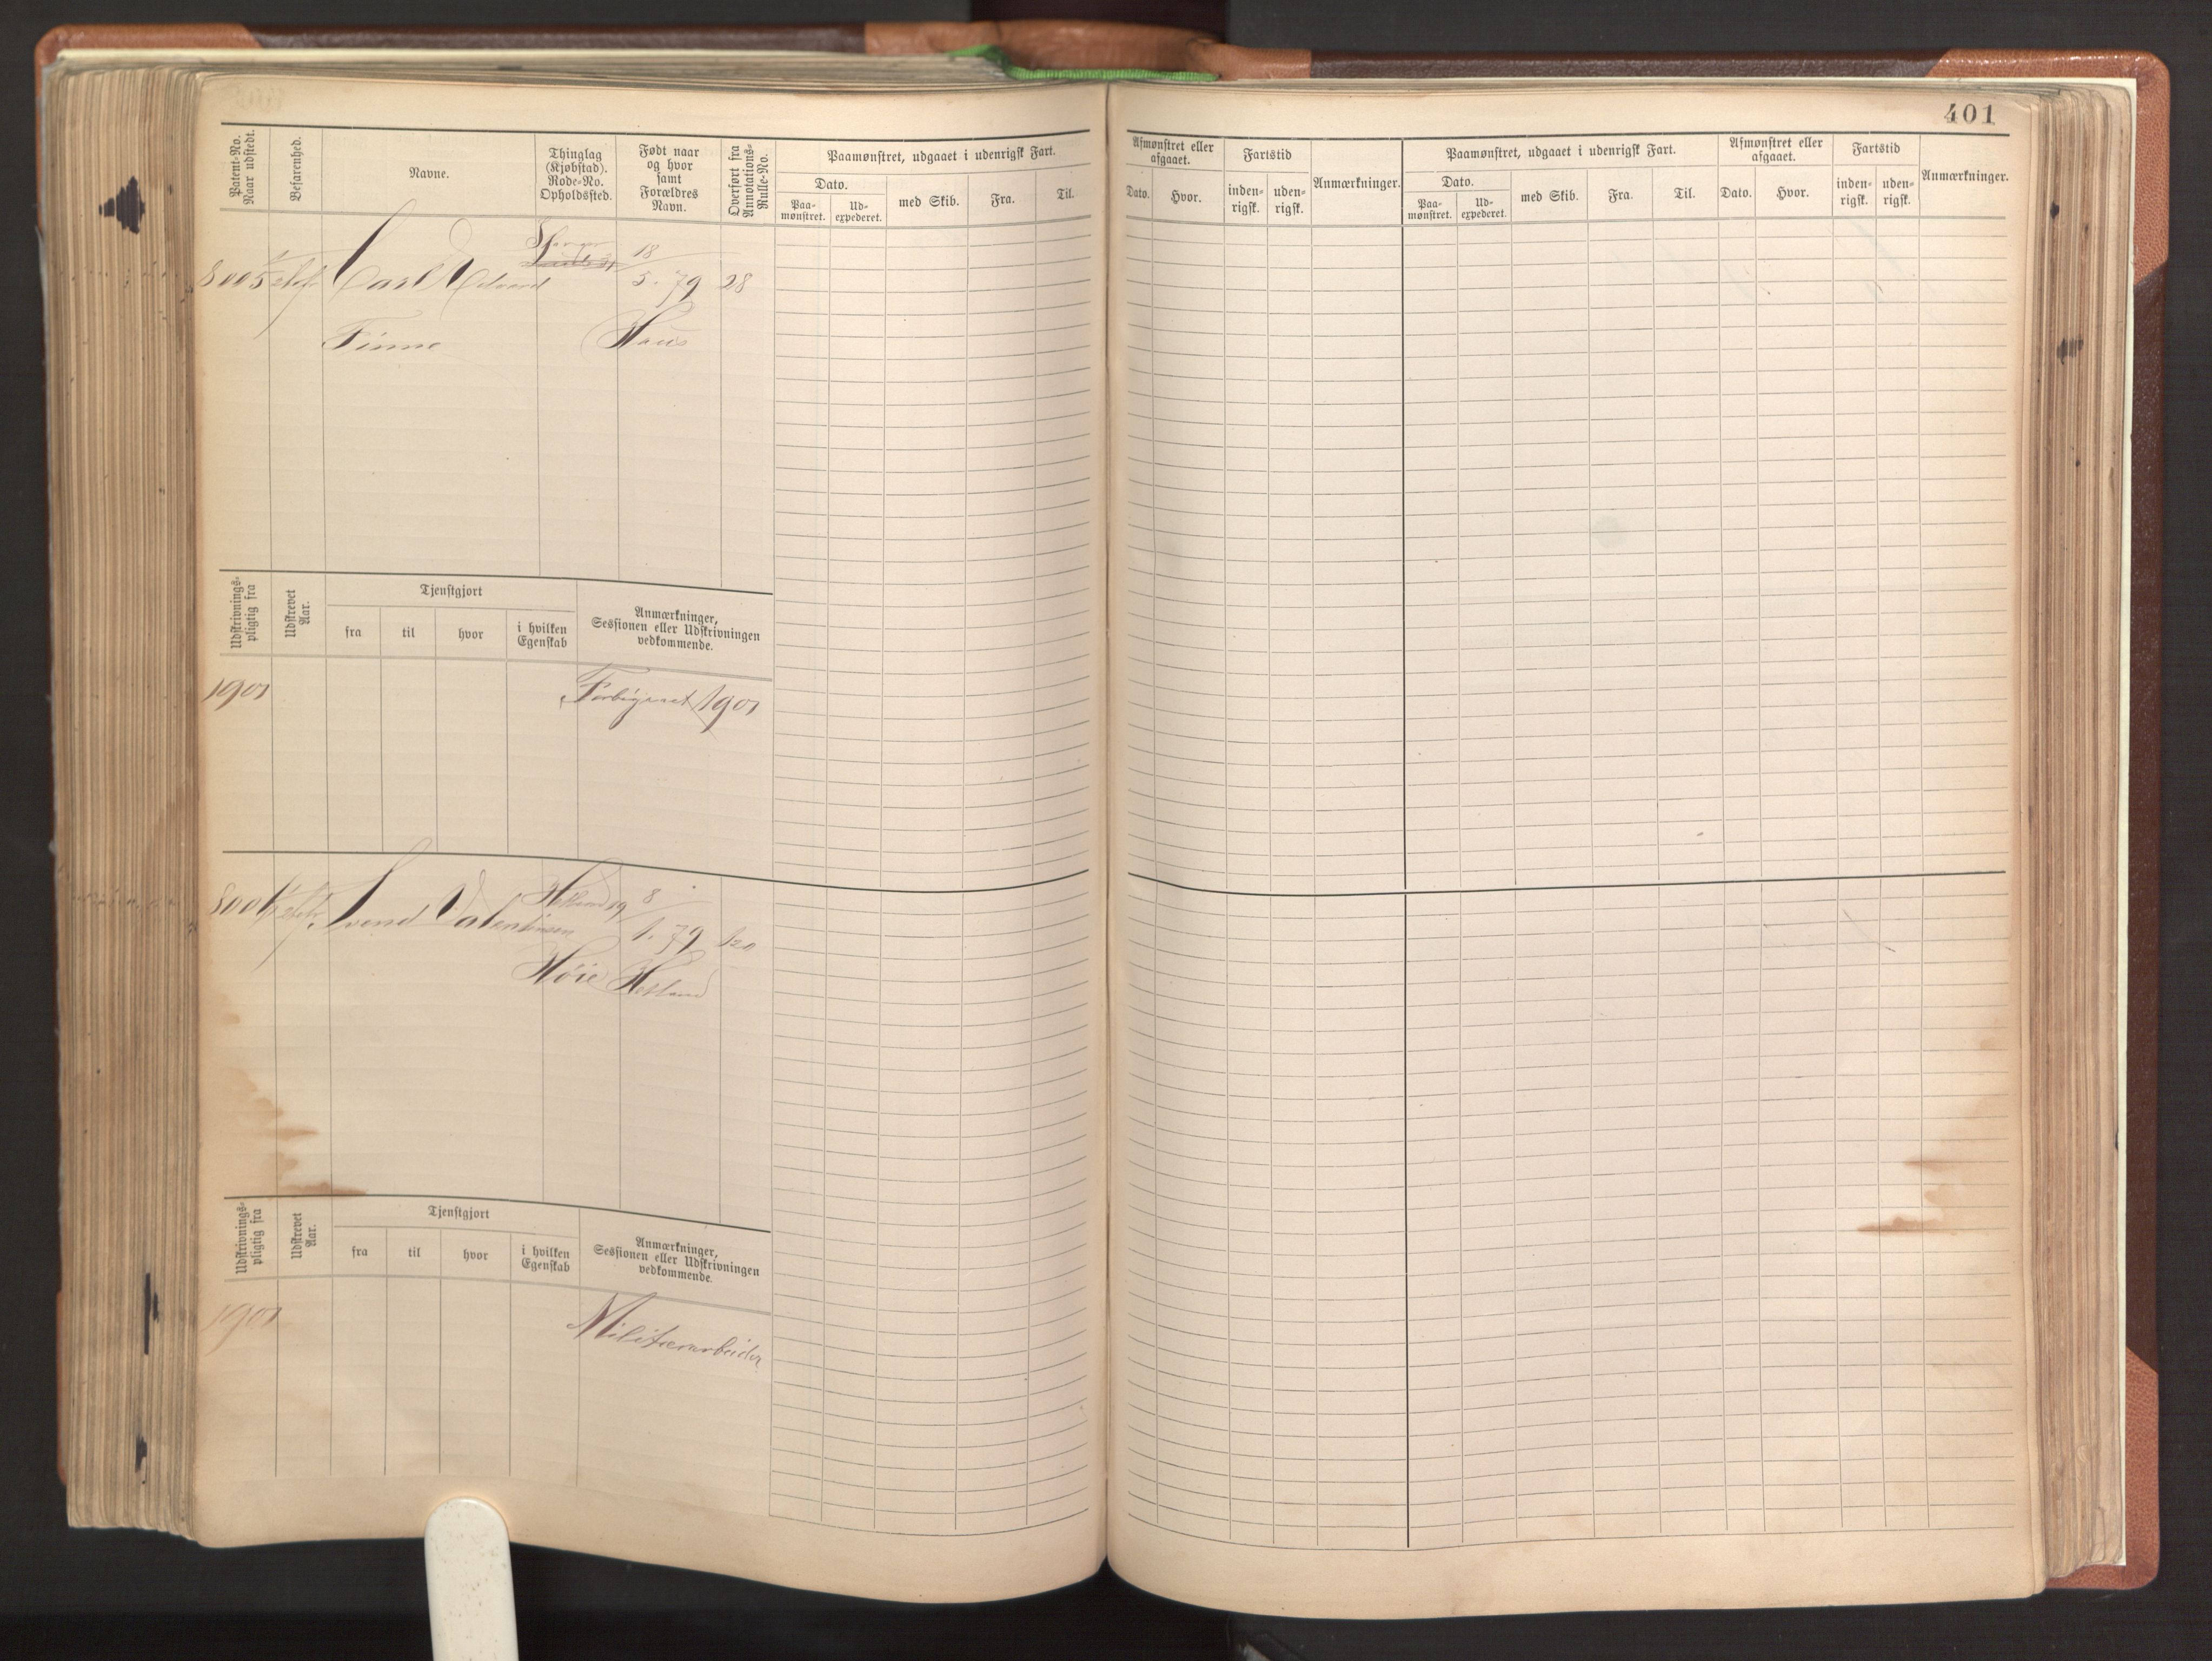 401
Patent-No.
Naar udstedt.
Befarenhed.
Navne.
Thinglag
(Kjøbstad).
Rode-No.
Opholdssted.
Født naar
og hvor
samt
Forældres
Navn.
Overført fra
Annotations-
Rulle-No.
Paamønstret, udgaaet i udenrigsk Fart.
Dato.
Paa-
mønstret.
Ud-
expederet.
med Skib.
Fra.
Til.
Afmønstret eller
afgaaet.
Dato.
Hvor.
Fartstid
inden-
rigsk.
uden-
rigsk.
Anmærkninger.
Paamønstret, udgaaet i udenrigsk Fart.
Dato.
Paa-
mønstret.
Ud-
expederet.
med Skib.
Fra.
Til.
Afmønstret eller
afgaaet.
Dato.
Hvor.
Fartstid
inden-
rigsk.
uden-
rigsk.
Anmærkninger.
8005 Carl Edvard 18/5. 79 28
Finne Haus
Udskrivnings-
pligtig fra
Udskrevet
Aar.
Tjenstgjort
fra
til
hvor
i hvilken
Egenskab
Anmærkninger,
Sessionen eller Udskrivningen
vedkommende.
1901 Forbigaaet 1901
8006 Svend Valentinsen Hetland 19 8/1. 79 120
Høie Hetland
Udskrivnings-
pligtig fra
Udskrevet
Aar.
Tjenstgjort
fra
til
hvor
i hvilken
Egenskab
Anmærkninger,
Sessionen eller Udskrivningen
vedkommende.
1901 Militærarbeider